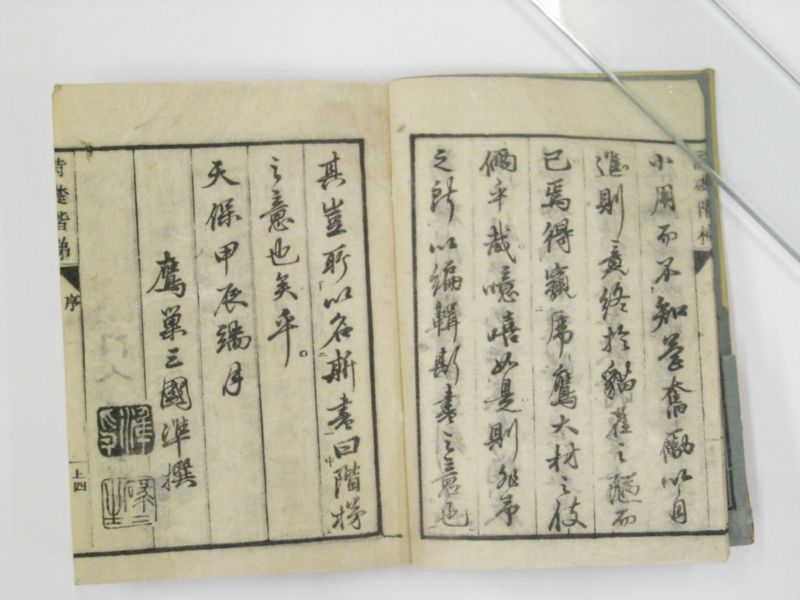 小用而不知篤奮勵以自
進則竟終於貓雀之軀而
已焉得窺虎鷹大材之伎
倆乎哉噫嘻如是則非予
之所以編輯斯書之意也
其豈所以名斯書曰階梯
之意也矣乎。
天保甲辰端月
鷹巢三國準撰
詩礎階梯
序
上四